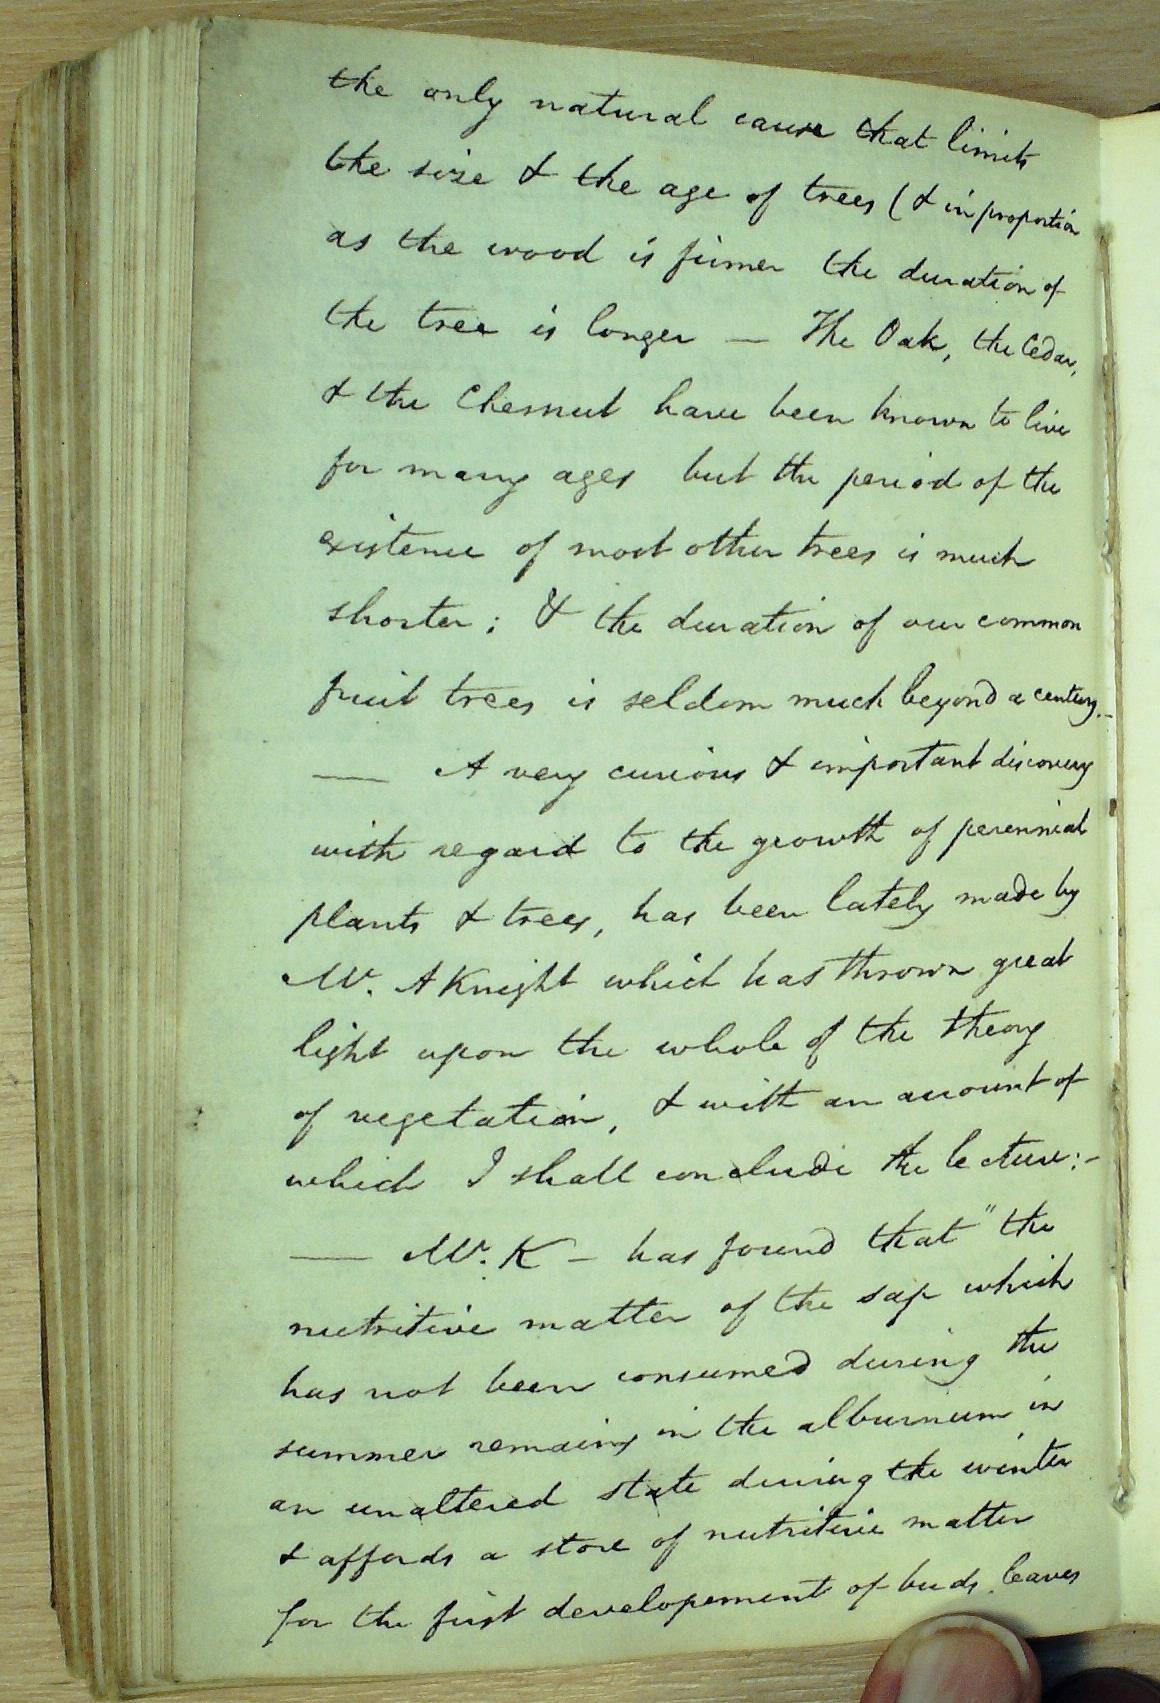 the only natural cause that limits
the size & the age of trees (& in proportion
as the wood is firmer the duration of
the tree is longer — The Oak, the Cedar,
& the Chesnut have been known to live
for many ages but the period of the
existence of most other trees is much
shorter; & the duration of our common
fruit trees is seldom much beyond a century.—
— A very curious & important discovery
with regard to the growth of perennial
plants & trees, has been lately made by
Mr. A Knight which has thrown great
light upon the whole of the theory
of vegetation, & with an account of
which I shall conclude the lecture:-
— Mr. K – has found that "the
nutritive matter of the sap which
has not been consumed during the
summer remains in the alburnum in
an unaltered state during the winter
& affords a store of nutritive matter
for the first developement of buds leaves